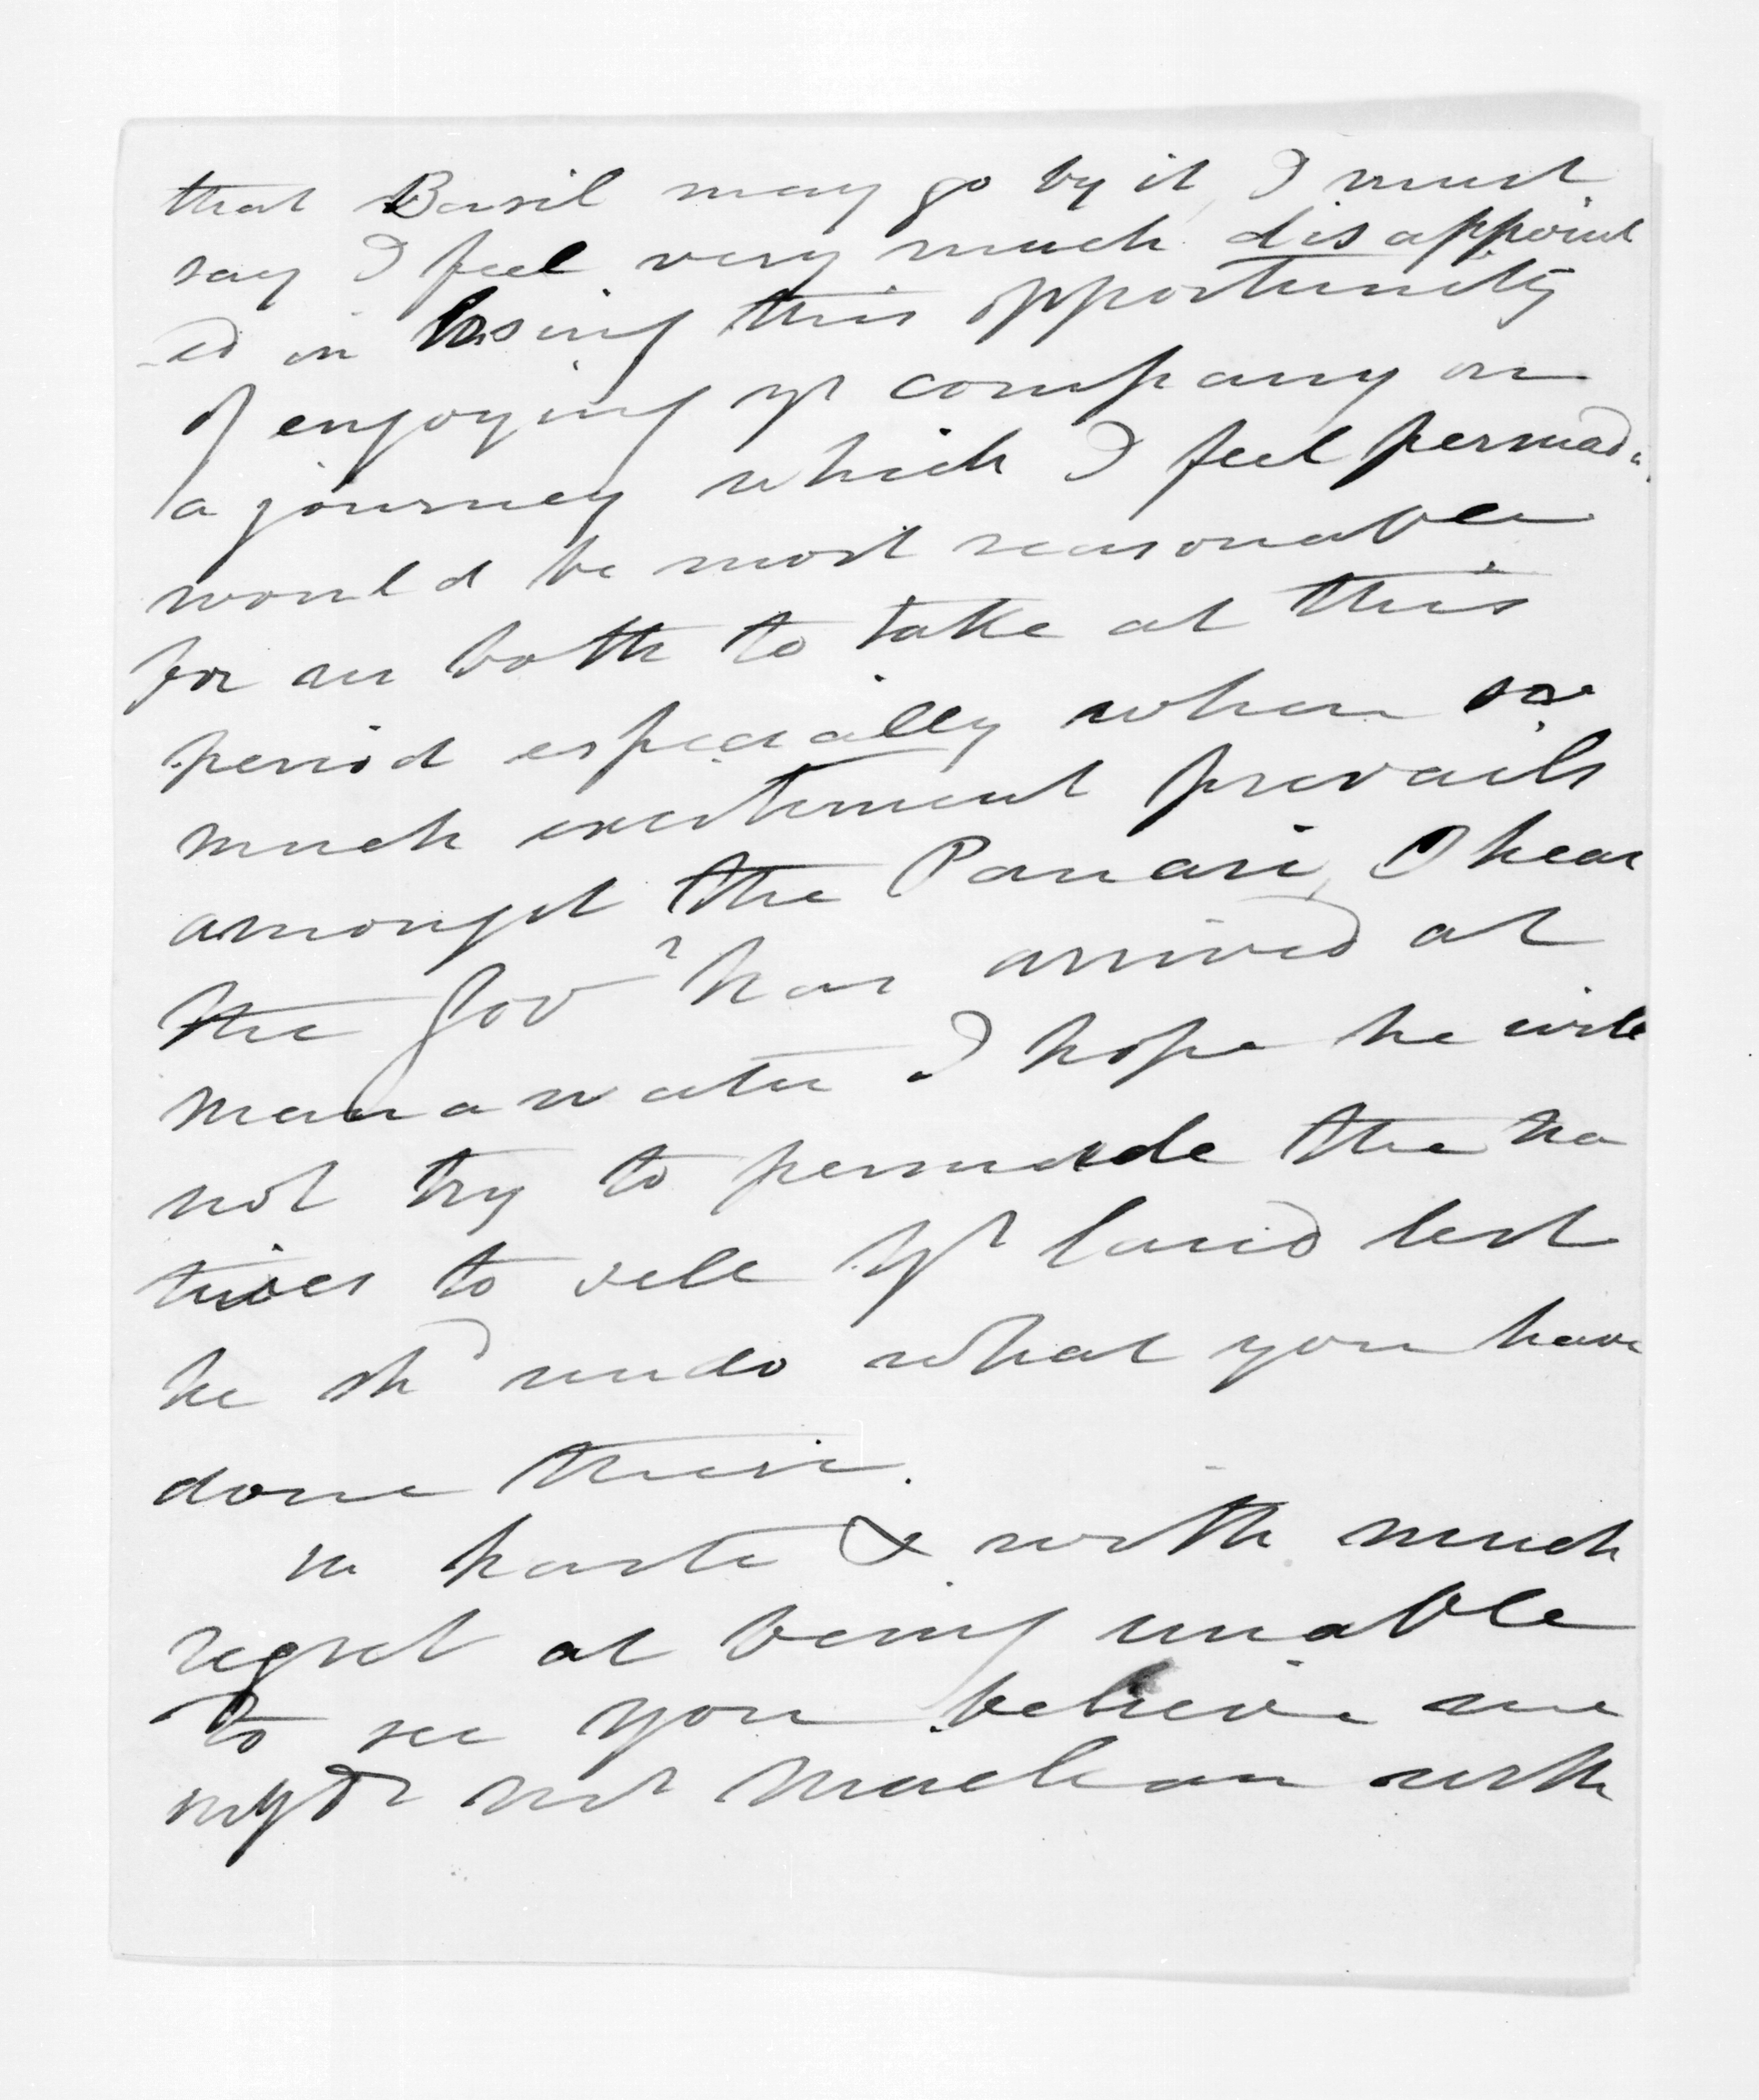 that Basil may go by it, I must
say I feel very much disappoint
-ed in losing this opportunity
of enjoying yr company on
a journey which I feel persuad.
would be most seasonable
for us both to take at this
period especially when so
much excitement prevails
amongst the Panari, I hear
the Govr has arrived at
manawatu I hope he will
not try to persuade the na
tives to sell yr land lest
he shd undo what you have
done there.
In haste & with much
regret at being unable
to see you believe me
my Dr Mr Maclean with